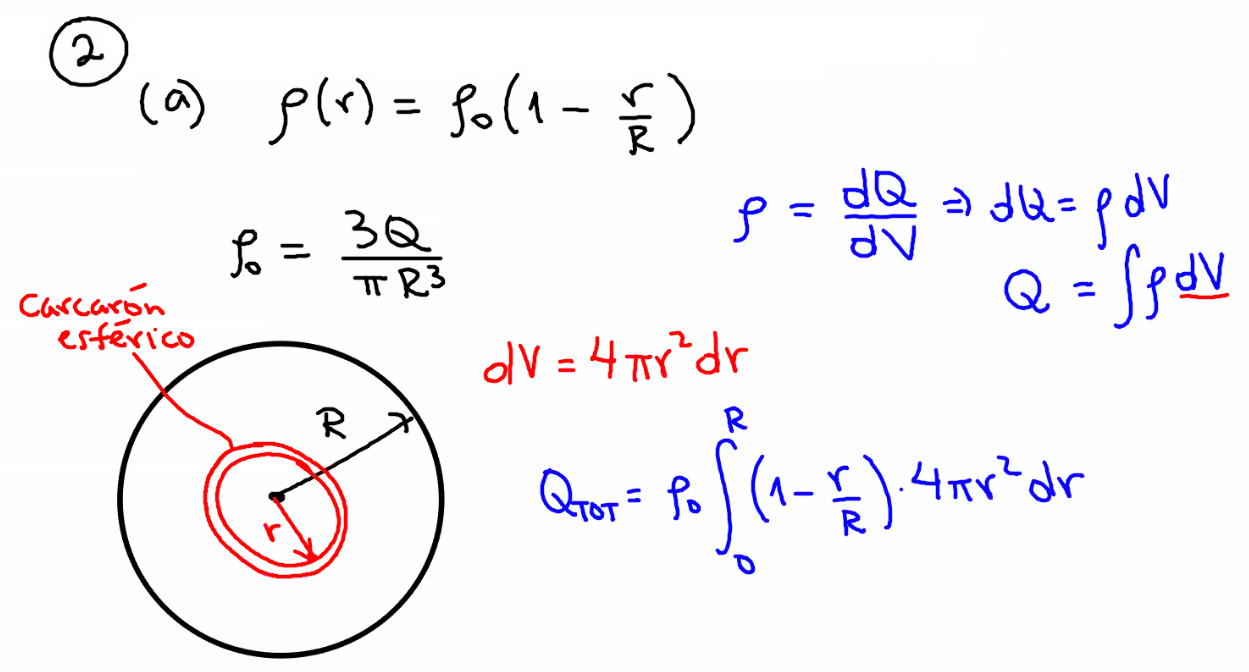 2
(a) ρ(r) = ρ₀(1 - r/R)
ρ₀ = 3Q/πR³
ρ = dQ/dV ⇒ dQ = ρdV
Q = ∫ρdV
Carcarón
esférico
dV = 4πr²dr
R
r
Q_TOT = ρ₀ ∫₀ᴿ (1 - r/R)·4πr²dr